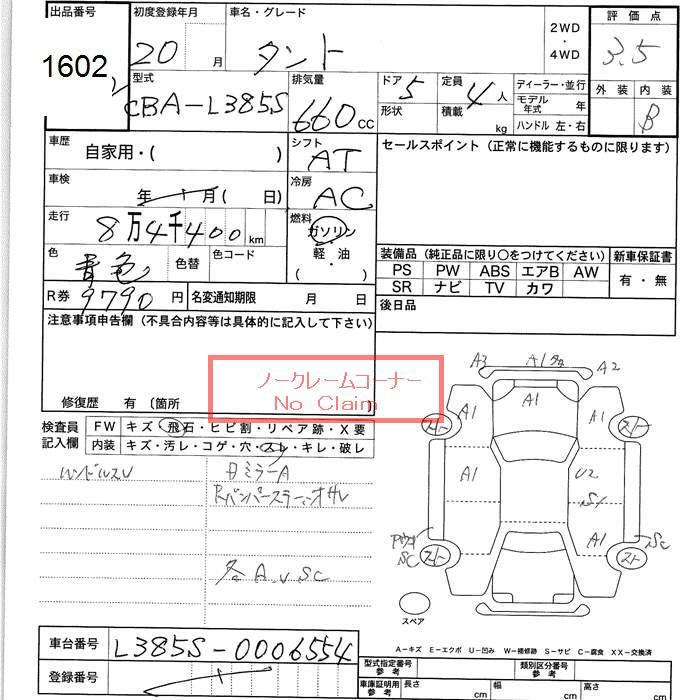 出品番号 初度登録年月 車名・グレード 2WD・4WD 評価点
1602 20 月 タント 3.5
型式 排気量 ドア 5 定員 4人 ディーラー・並行 外装 内装
CBA-L385S 660cc 形状 積載 kg モデル年式 年 B
ハンドル 左・右
車歴 自家用・( ) シフト AT セールスポイント(正常に機能するものに限ります)
車検 年 月( 日) 冷房 AC
走行 8万4千400km 燃料 ガソリン・軽油( )
色 青色 色替 色コード 装備品(純正品に限り〇をつけてください) 新車保証書
PS PW ABS エアB AW 有・無
R券 9790円 名変通知期限 月 日 SR ナビ TV カワ
注意事項申告欄(不具合内容等は具体的に記入して下さい) 後日品
ノークレームコーナー
No Claim
修復歴 有〔箇所
検査員記入欄 FW キズ・飛石・ヒビ割・リペア跡・X要
内装 キズ・汚レ・コゲ・穴・スレ・キレ・破レ
ハンドルスレ
ミラーA
各A.U SC
A3 A1 A2
A1 A1 A1
A1 U2
A1
SC SC
スペア
A-キズ E-エクボ U-凹み W-補修跡 S-サビ C-腐食 XX-交換済
車台番号 L385S-0006554 型式指定番号 参考 類別区分番号 参考
登録番号 車庫証明用 参考 長さ cm 幅 cm 高さ cm